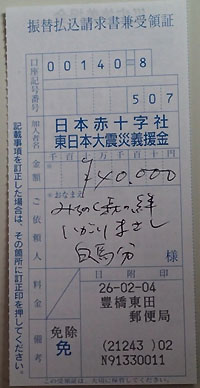 振替払込請求書兼受領証
口座記号番号
00140=8
507
加入者名
日本赤十字社
東日本大震災義援金
金額
千百十万千百十円
¥40,000
ご依頼人
おなまえ
みちのく
いがり まさし
白馬分
様
料金
日附印
26-02-04
豊橋東田
郵便局
備考
免除
免
(21243)02
N91330011
記載事項を訂正した場合は、その箇所に訂正印を押してください。